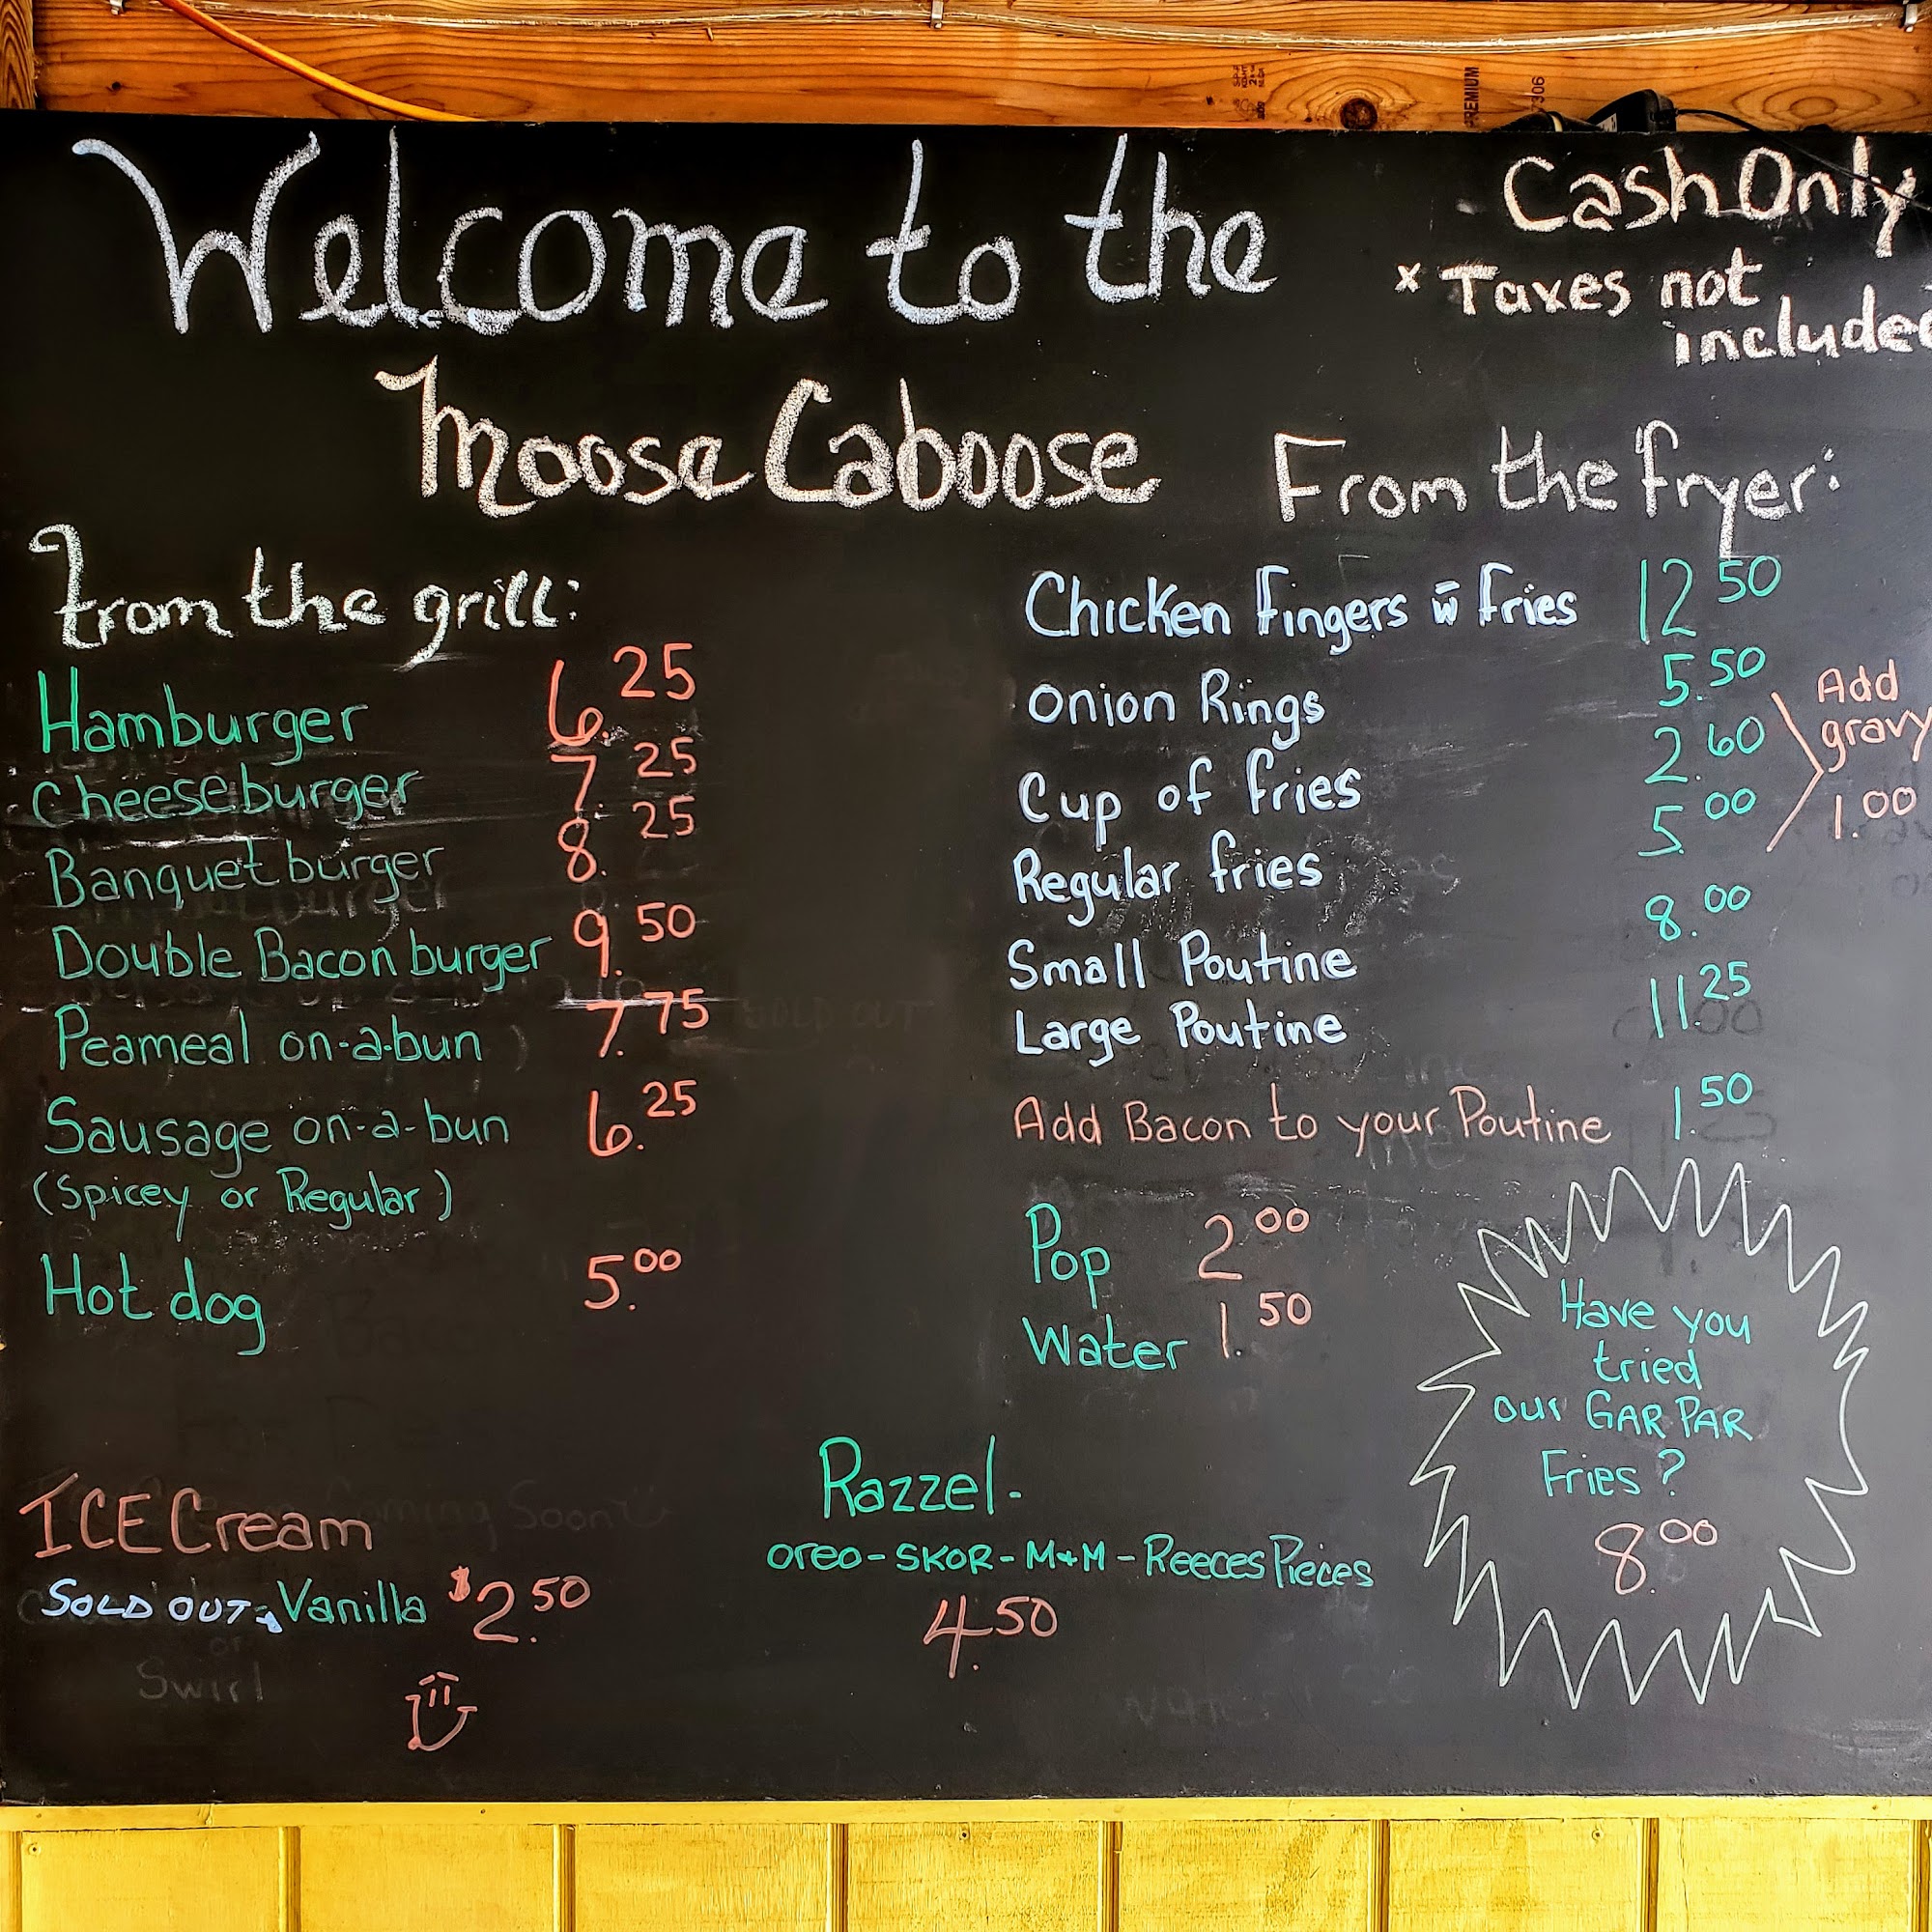 PREMIUM
Welcome to the
Moose Caboose
Cash Only
x Taxes not
included
From the grill:
Hamburger 6.25
Cheeseburger 7.25
Banquet burger 8.25
Double Bacon burger 9.50
Peameal on-a-bun 7.75
Sausage on-a-bun 6.25
(Spicey or Regular)
Hot dog 5.00
From the fryer:
Chicken Fingers w̄ fries 12 50
Onion Rings 5.50
Cup of fries 2.60
Regular fries 5.00
Add
gravy
1.00
Small Poutine 8.00
Large Poutine 11.25
Add Bacon to your Poutine 1.50
Pop 2.00
Water 1.50
Have you
tried
our GAR PAR
Fries?
8.00
ICE Cream
SOLD OUT Vanilla $2.50
or
Swirl
Razzel.
oreo - SKOR - M+M - Reeces Pieces
4.50